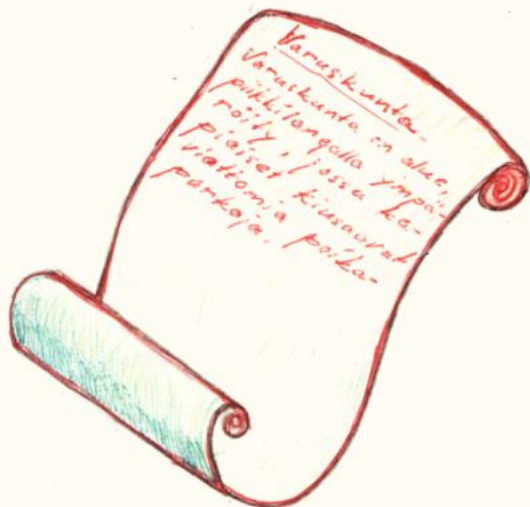 Varuskunta.
Varuskunta on alue,
piikkilangalla ympä-
röity, jossa ka-
piaiset kiusaavat
viattomia poika-
parkoja.